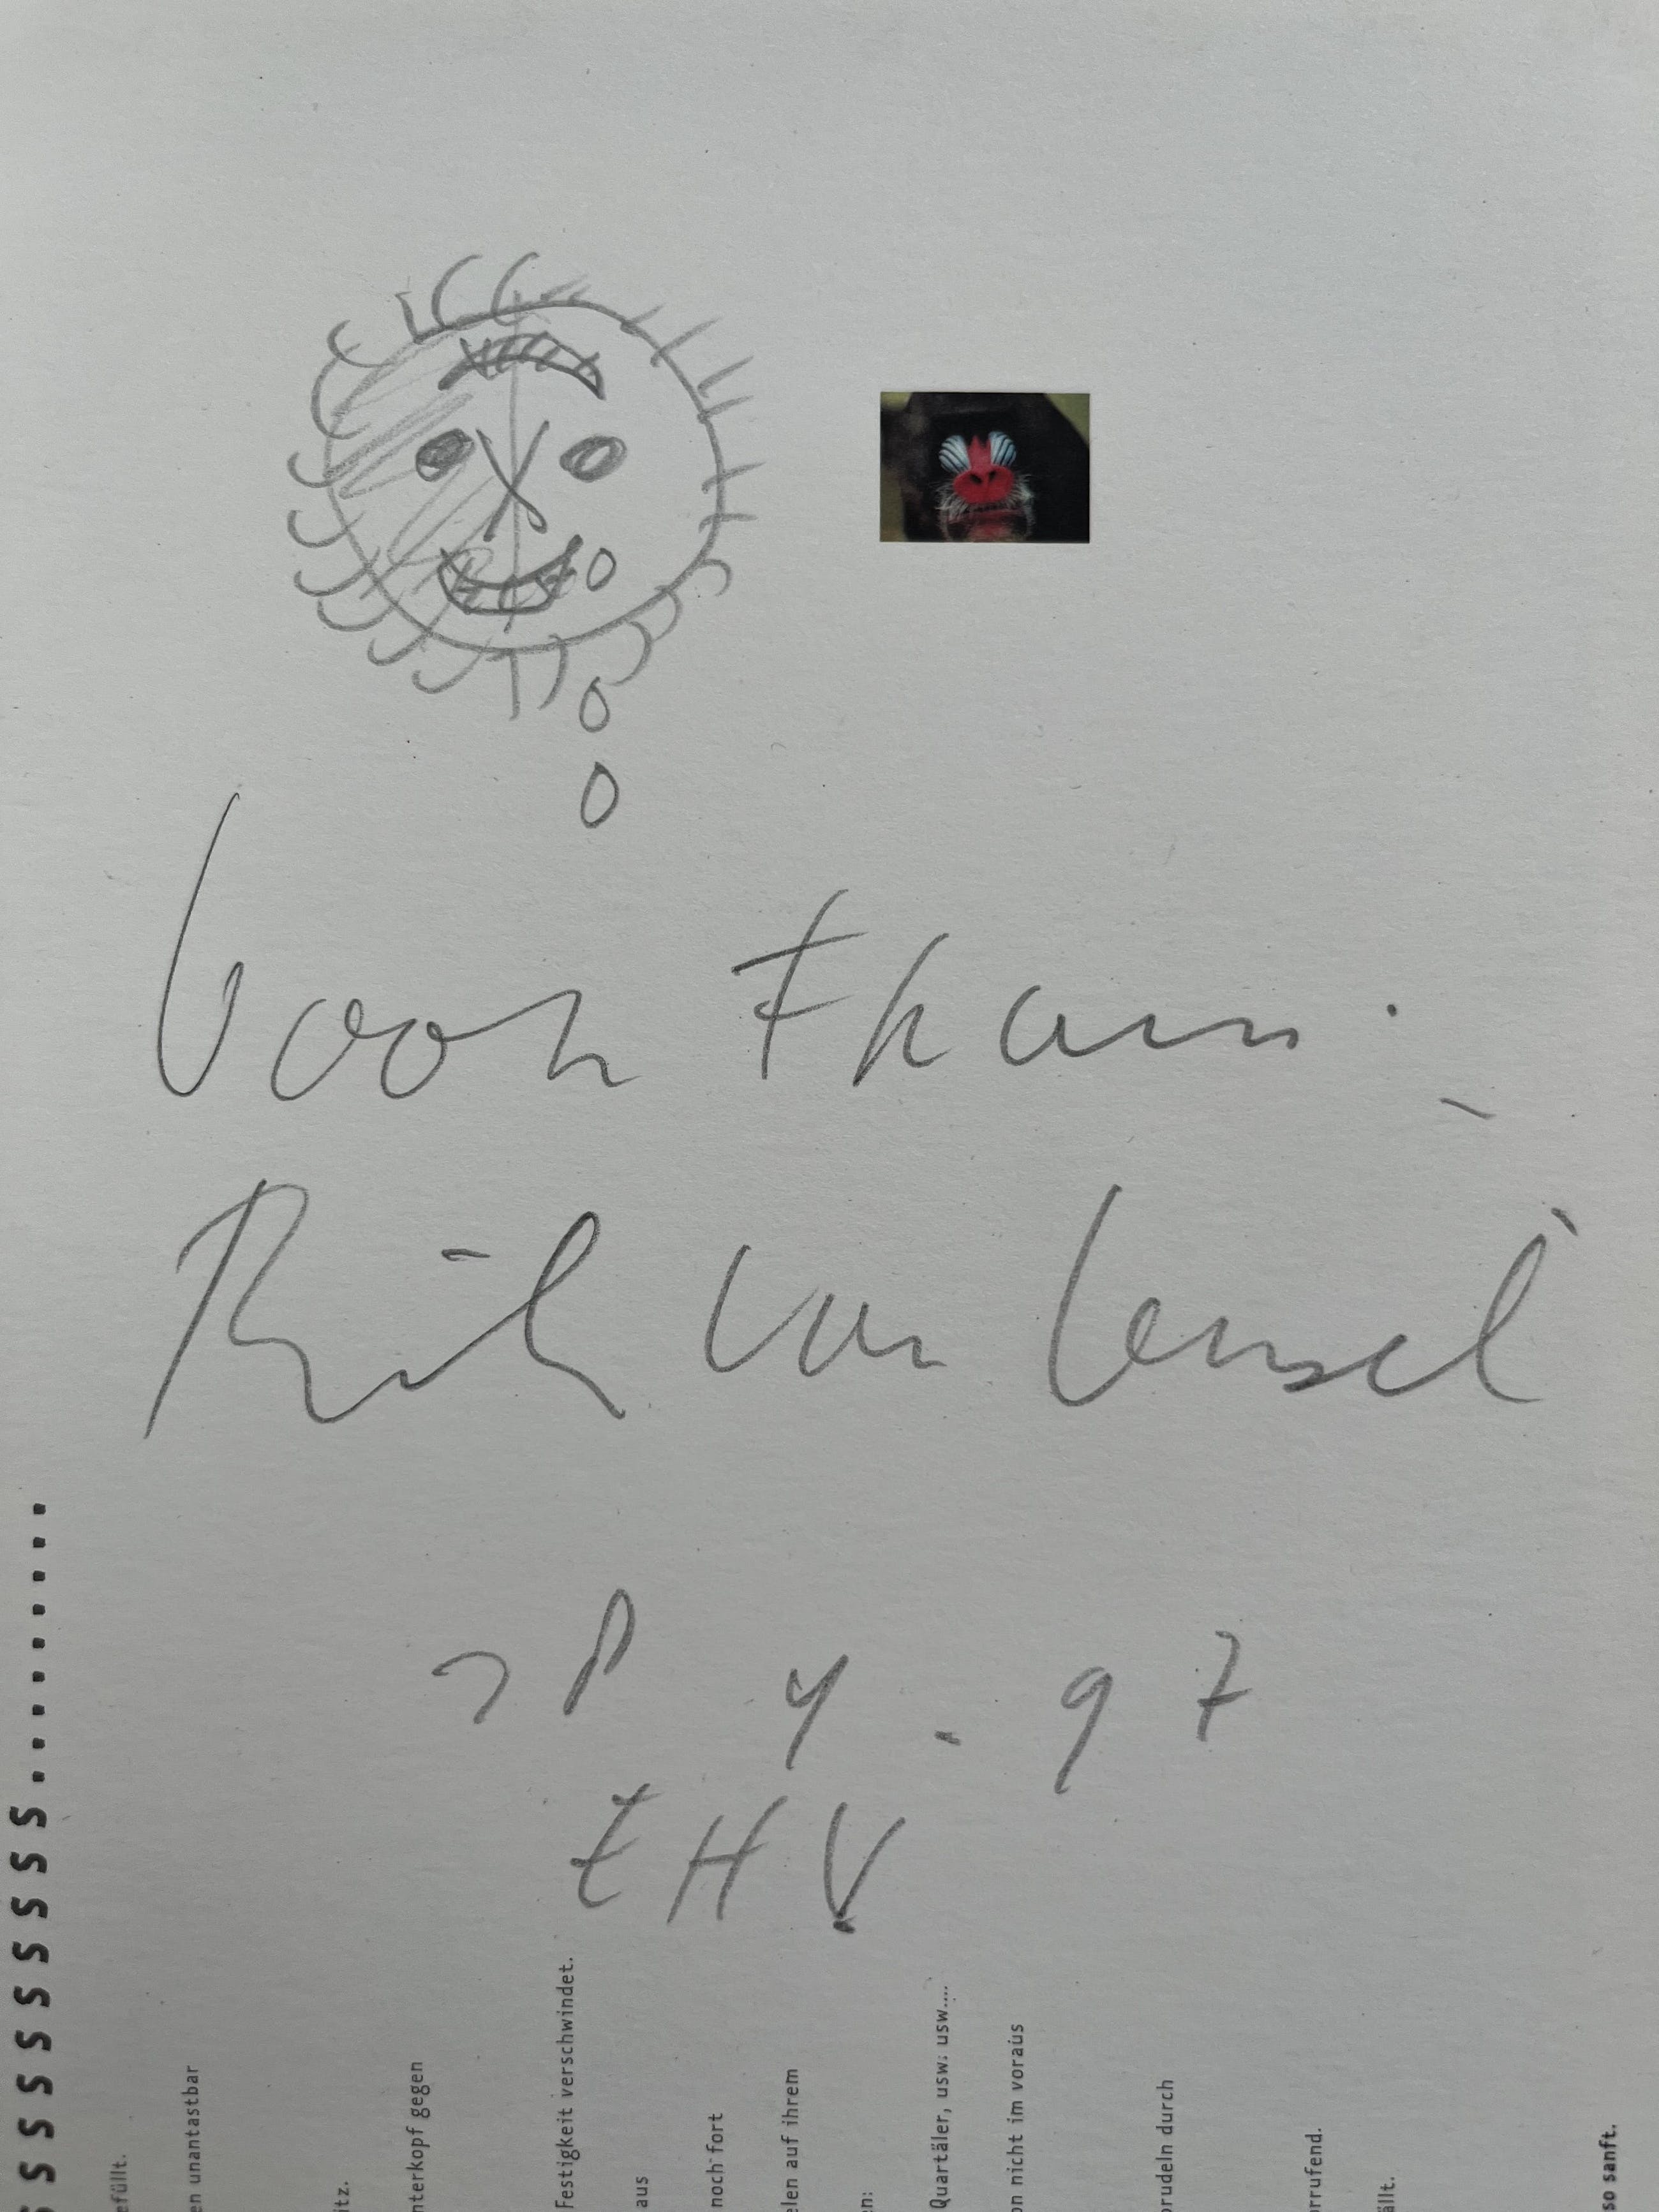 Voor Frans.
Rik van Iersel
28 4.97
EHV
SSSSSSSSS.........
efüllt.
en unantastbar
itz.
nterkopf gegen
Festigkeit verschwindet.
aus
noch fort
elen auf ihrem
en:
Quartäler, usw. usw....
on nicht im voraus
prudeln durch
rrufend.
ällt.
so sanft.